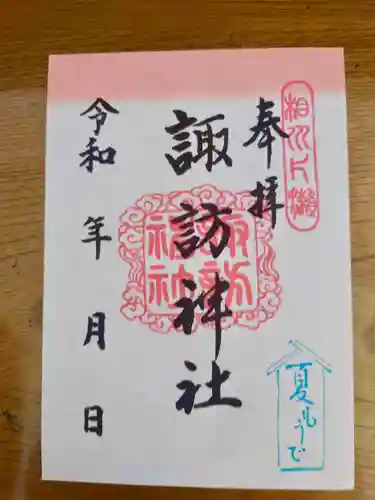 相州片瀬
奉拝
諏訪神社
諏訪神社
夏もうで
令和 年 月 日